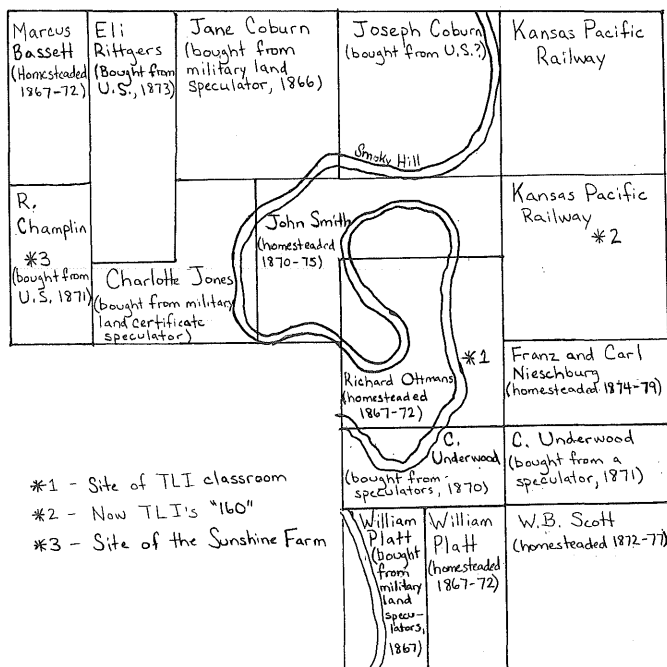 Marcus
Bassett
(Homesteaded
1867-72)
Eli
Rittgers
(Bought from
U.S., 1873)
Jane Coburn
(bought from
military land
speculator, 1866)
Joseph Coburn
(bought from U.S.?)
Kansas Pacific
Railway
Smoky Hill
R.
Champlin
*3
(bought from
U.S, 1871)
Charlotte Jones
(bought from military
land certificate
speculator)
John Smith
(homesteaded
1870-75)
Kansas Pacific
Railway
*2
Richard Ottmans
(homesteaded
1867-72)
*1
Franz and Carl
Nieschburg
(homesteaded 1874-79)
C.
Underwood
(bought from
speculators, 1870)
C. Underwood
(bought from a
speculator, 1871)
William
Platt
(bought
from
military
land
specu-
lators,
1867)
William
Platt
(homesteaded
1867-72)
W.B. Scott
(homesteaded 1872-77)
*1 - Site of TLI classroom
*2 - Now TLI's "160"
*3 - Site of the Sunshine Farm